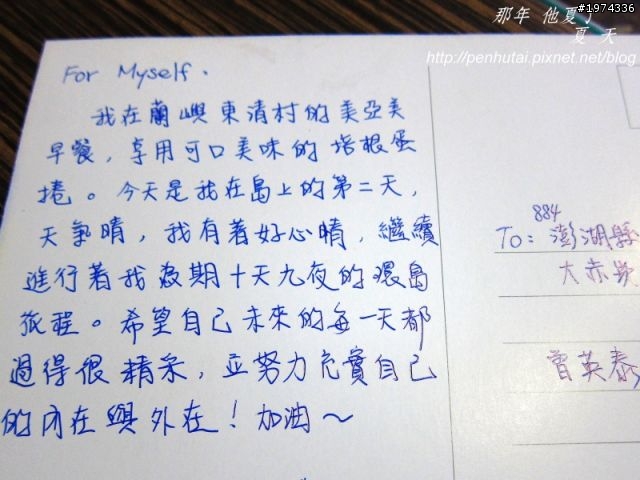 #1974336
那年 他夏了
夏 天
http://penhutai.pixnet.net/blog
For Myself.
我在蘭嶼東清村的美亞美
早餐，享用可口美味的培根蛋
捲。今天是我在島上的第二天，
天氣晴，我有著好心晴，繼續
進行著我為期十天九夜的環島
旅程。希望自己未來的每一天都
過得很精采，並努力充實自己
的內在與外在！加油～
884
To: 澎湖縣
大赤崁
曾英泰